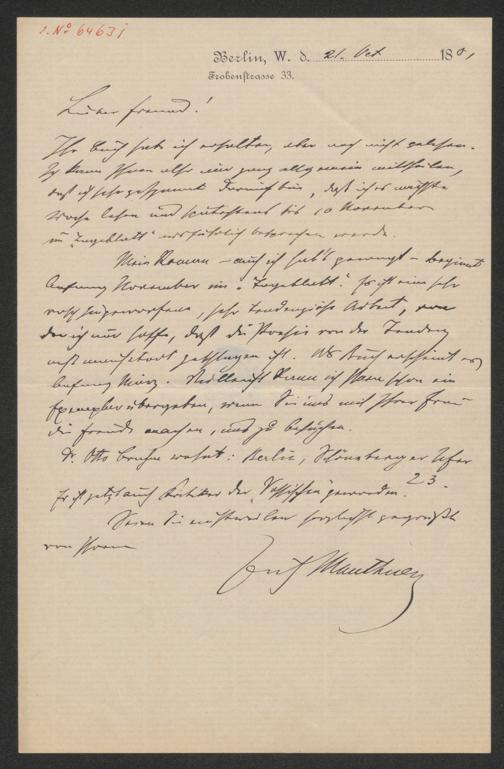 I. Nº 64631
Berlin, W. d. 21. Oct 188
Frobenstrasse 33.
Lieber Freund!
Ihr Buch habe ich erhalten, aber noch nicht gelesen.
Ich kann Ihnen also nur ganz allgemein mittheilen,
daß ich sehr gespannt darauf bin, daß ich es nächste
Woche lesen und spätestens bis 10 November
im "Tageblatt" ausführlich besprechen werde.
Mein Roman – auch ich hab's gewagt – beginnt
Anfang November im "Tageblatt". Es ist eine sehr
rasch hingeworfene, sehr tendenziöse Arbeit, von
der ich nur hoffe, daß die Poesie von der Tendenz
nicht todt geschlagen ist. Als Buch erscheint es
Anfang März. Vielleicht kann ich Ihnen schon ein
Exemplar übergeben, wenn Sie uns mit Ihrer Frau
die Freude machen, uns zu besuchen.
Dr. Otto Brahm wohnt: Berlin, Schöneberger Ufer
23.
Er ist jetzt auch Kritiker der Vossischen geworden.
Seien Sie einstweilen herzlichst gegrüßt
von Ihrem
Fritz Mauthner